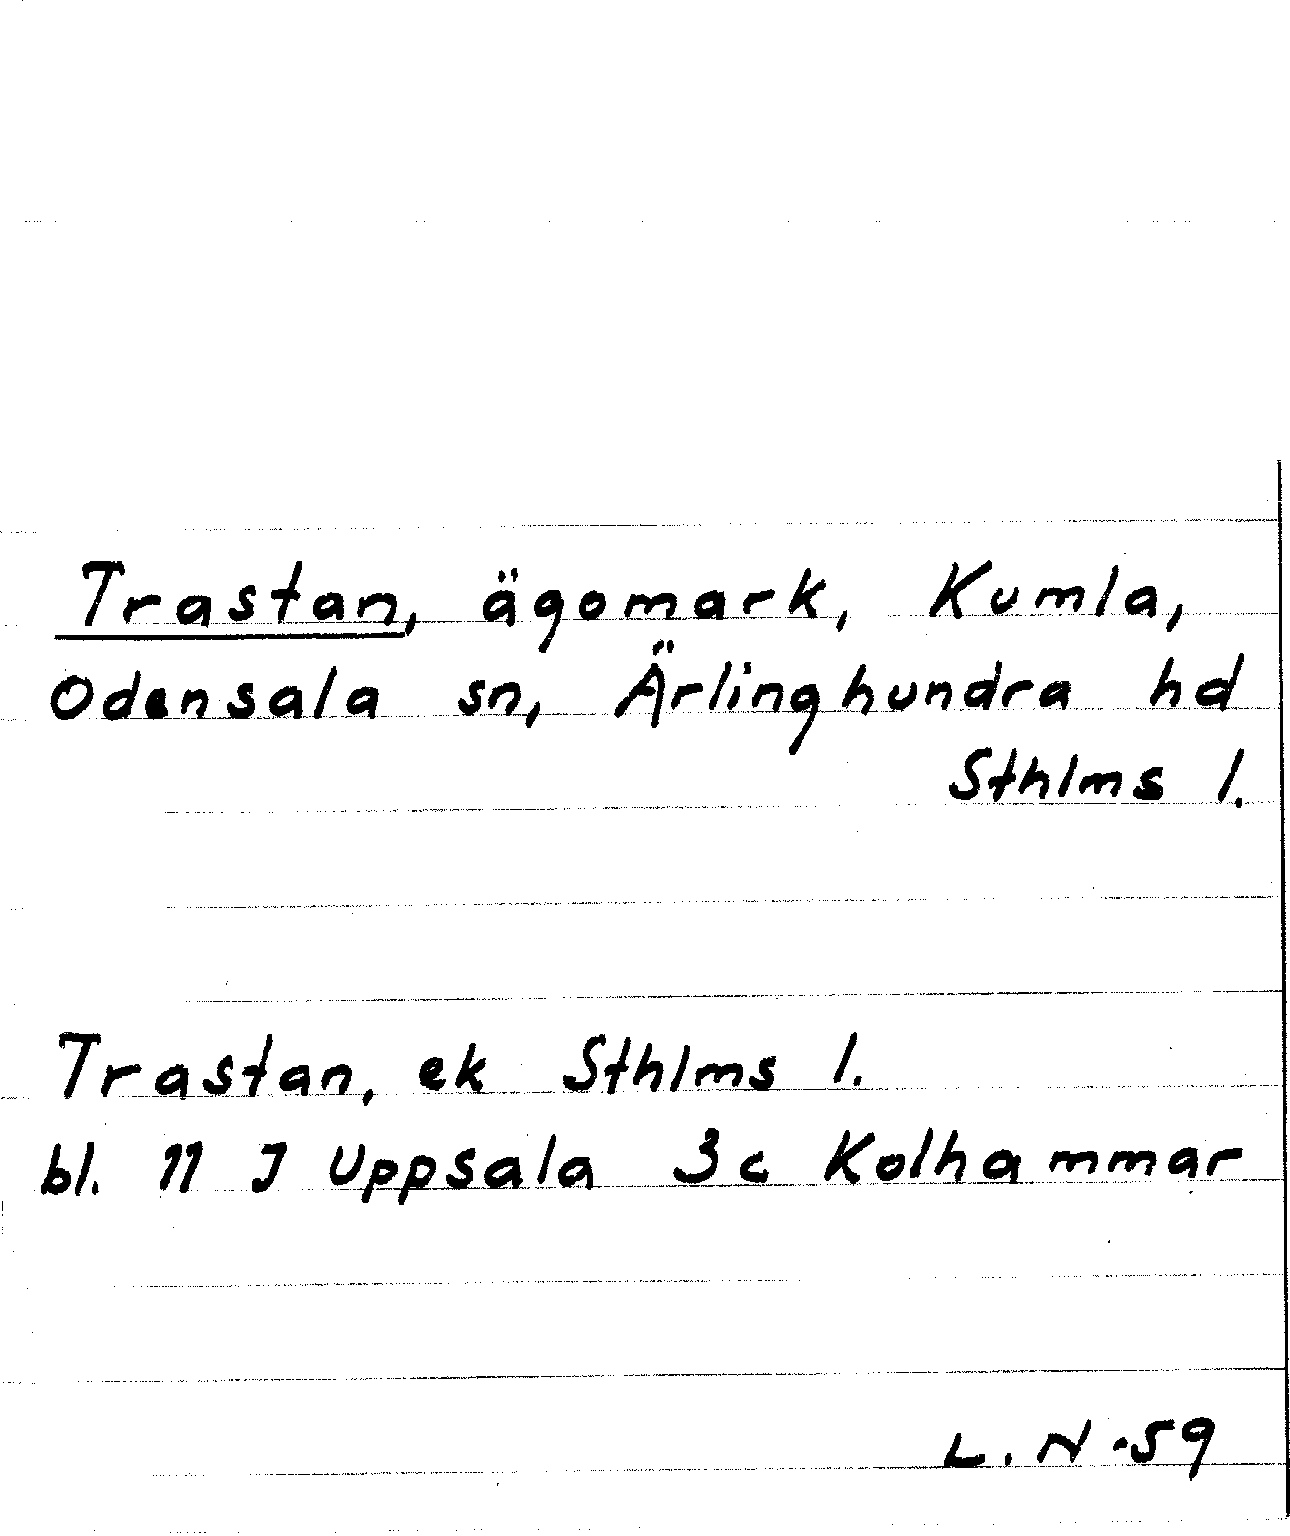 Trastan, ägomark, Kumla,
Odensala sn, Ärlinghundra hd
Sthlms l.
Trastan, ek Sthlms l.
bl. 11 J Uppsala 3c Kolhammar
L. N -59